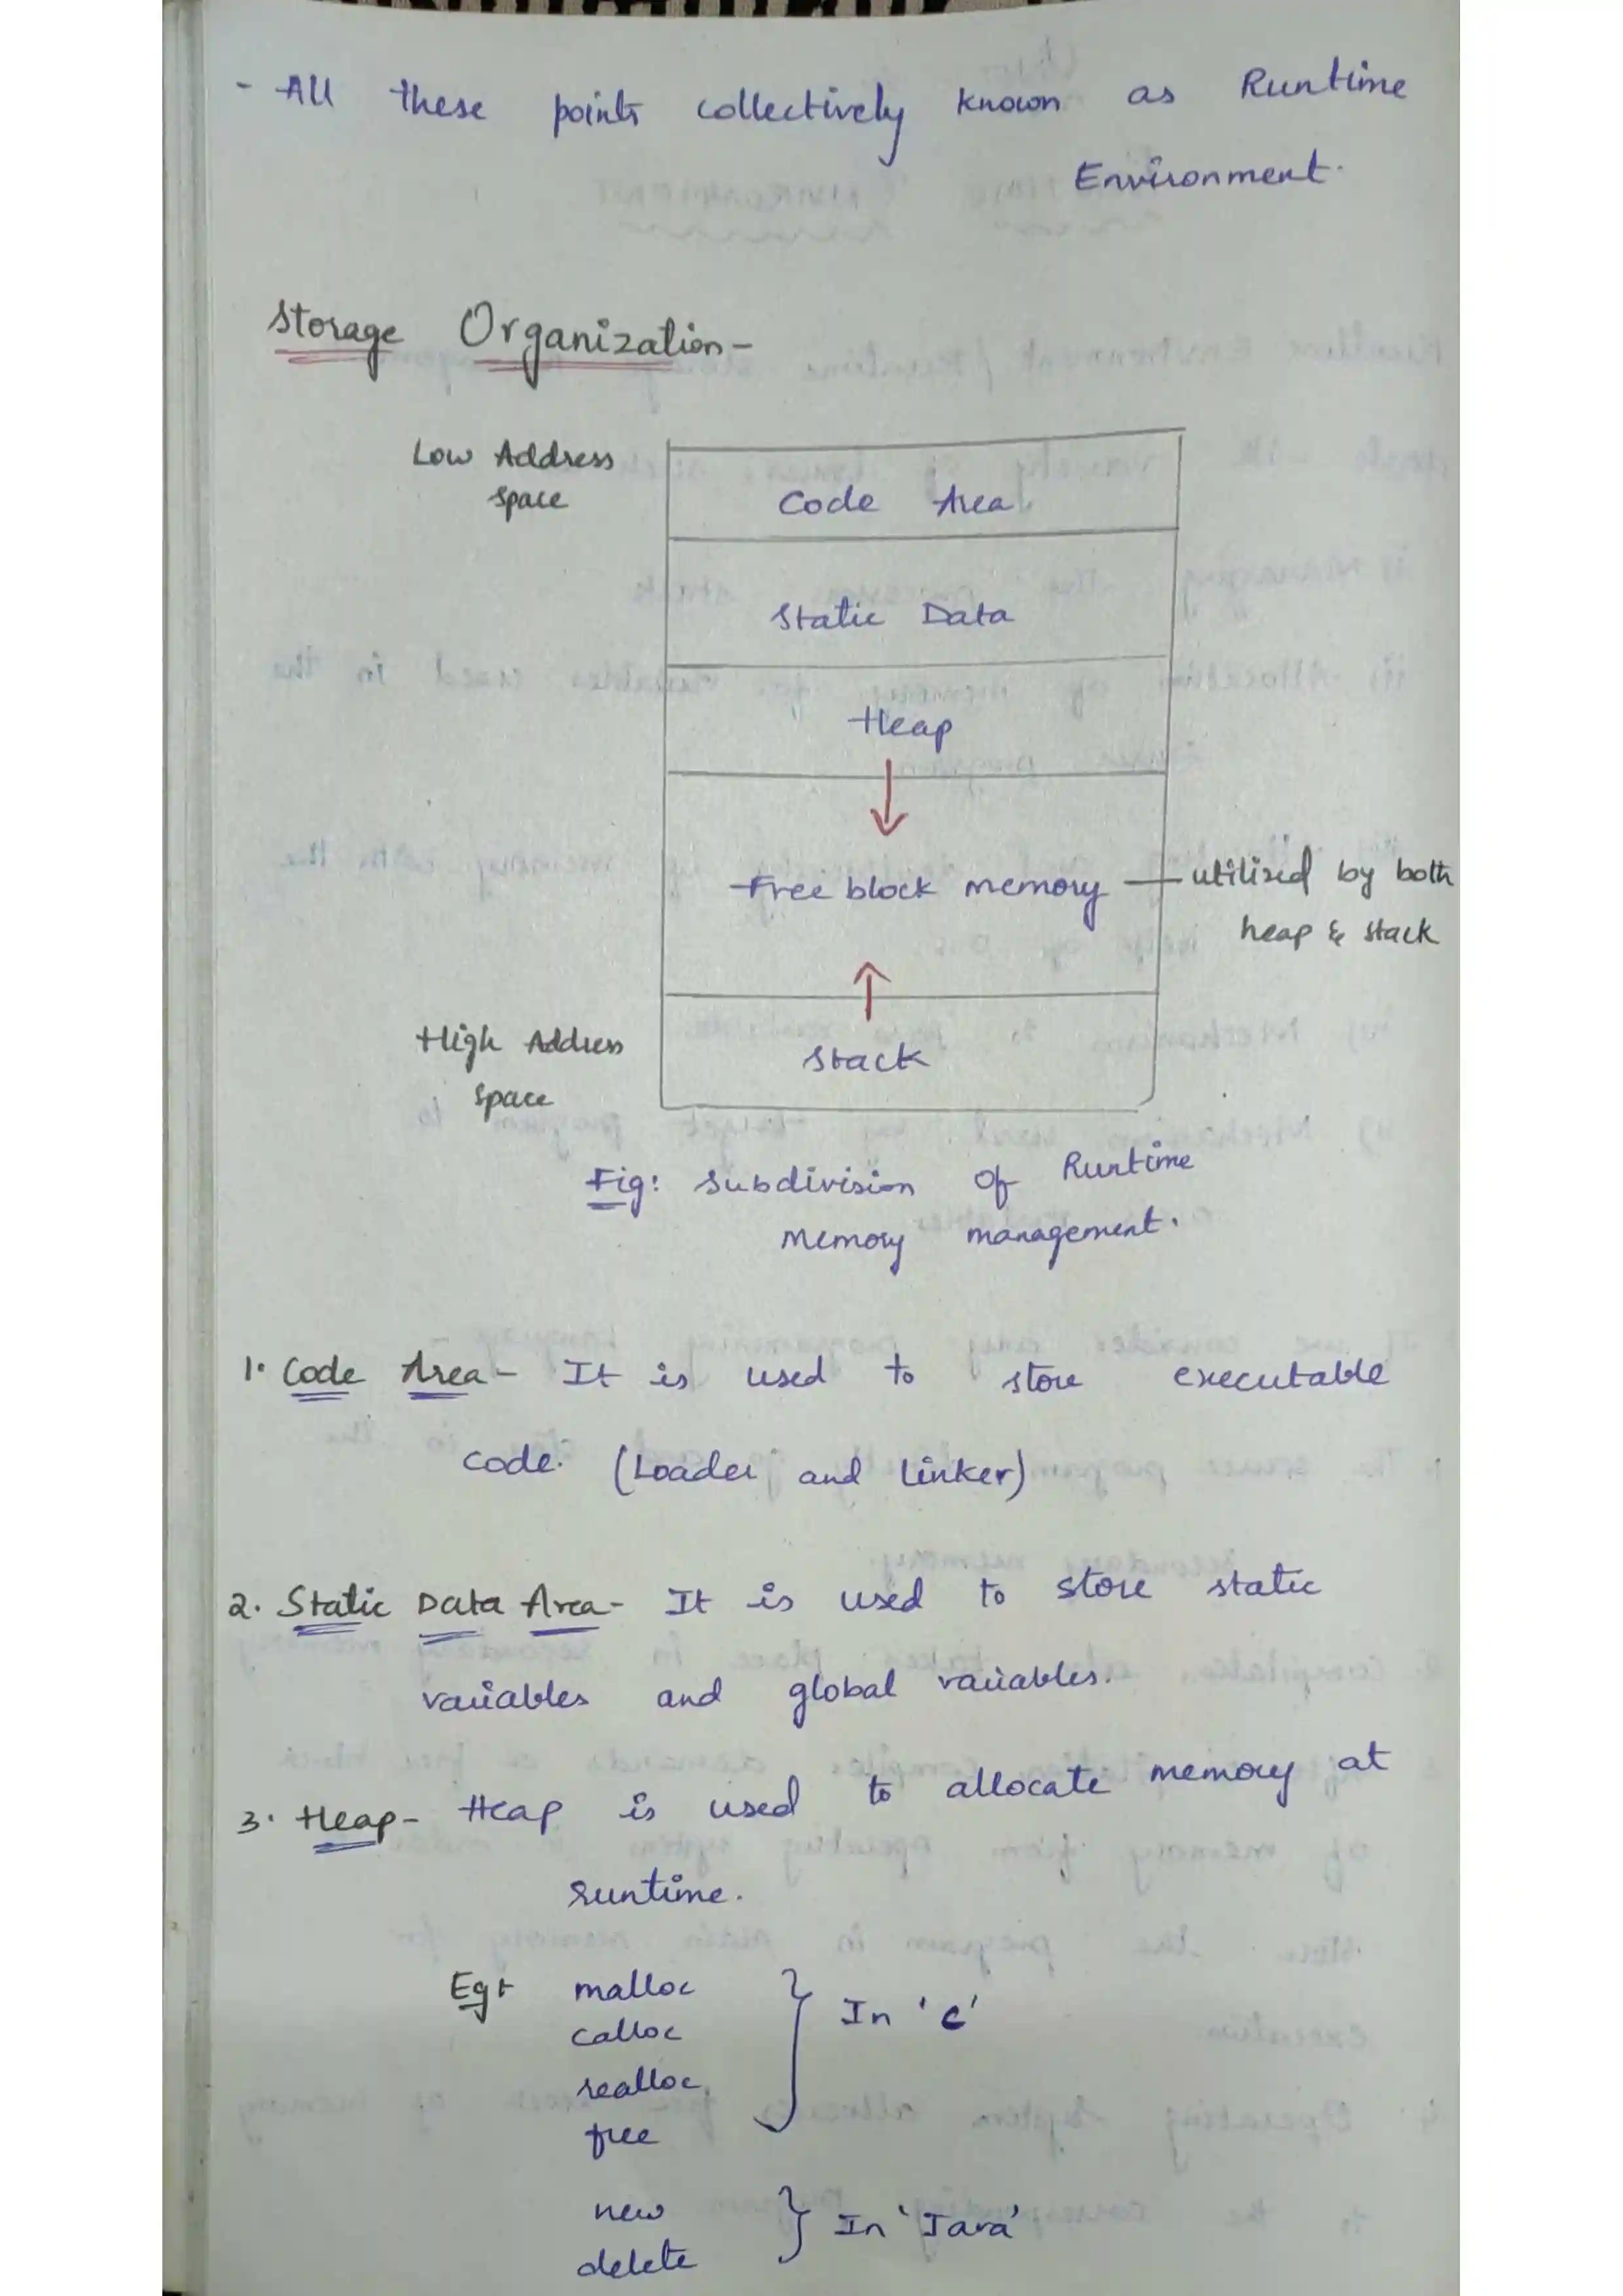 - All these points collectively known as Runtime
Environment.
Storage Organization -
Low Address
Space
Code Area
Static Data
Heap
Free block memory
utilized by both
heap & stack
High Address
Space
Stack
Fig: Subdivision of Runtime
Memory management.
1. Code Area - It is used to store executable
code. (Loader and Linker)
2. Static Data Area - It is used to store static
variables and global variables.
3. Heap - Heap is used to allocate memory at
runtime.
Eg: malloc
calloc
realloc
free
In 'C'
new
delete
In 'Java'